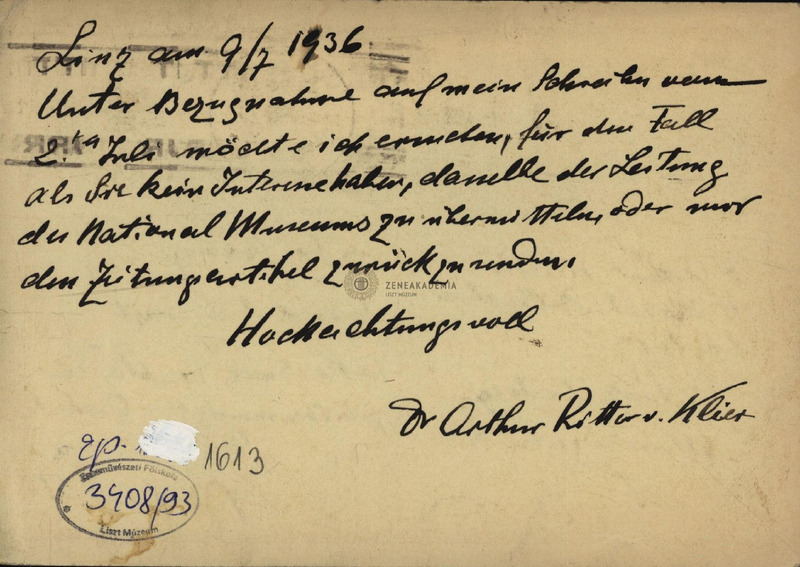 Linz am 9/7 1936
Unter Bezugnahme auf mein Schreiben vom
2.ten Juli möchte ich ersuchen, für den Fall
als Sie kein Interesse haben, dasselbe der Leitung
des National Museums zu übermitteln, oder mir
den Zeitungsartikel zurückzusenden.
ZENEAKADEMIA
LISZT MÚZEUM
Hochachtungsvoll
Dr Arthur Ritter v. Klier
ep. 1613
Zeneművészeti Főiskola
3408/93
Liszt Múzeum